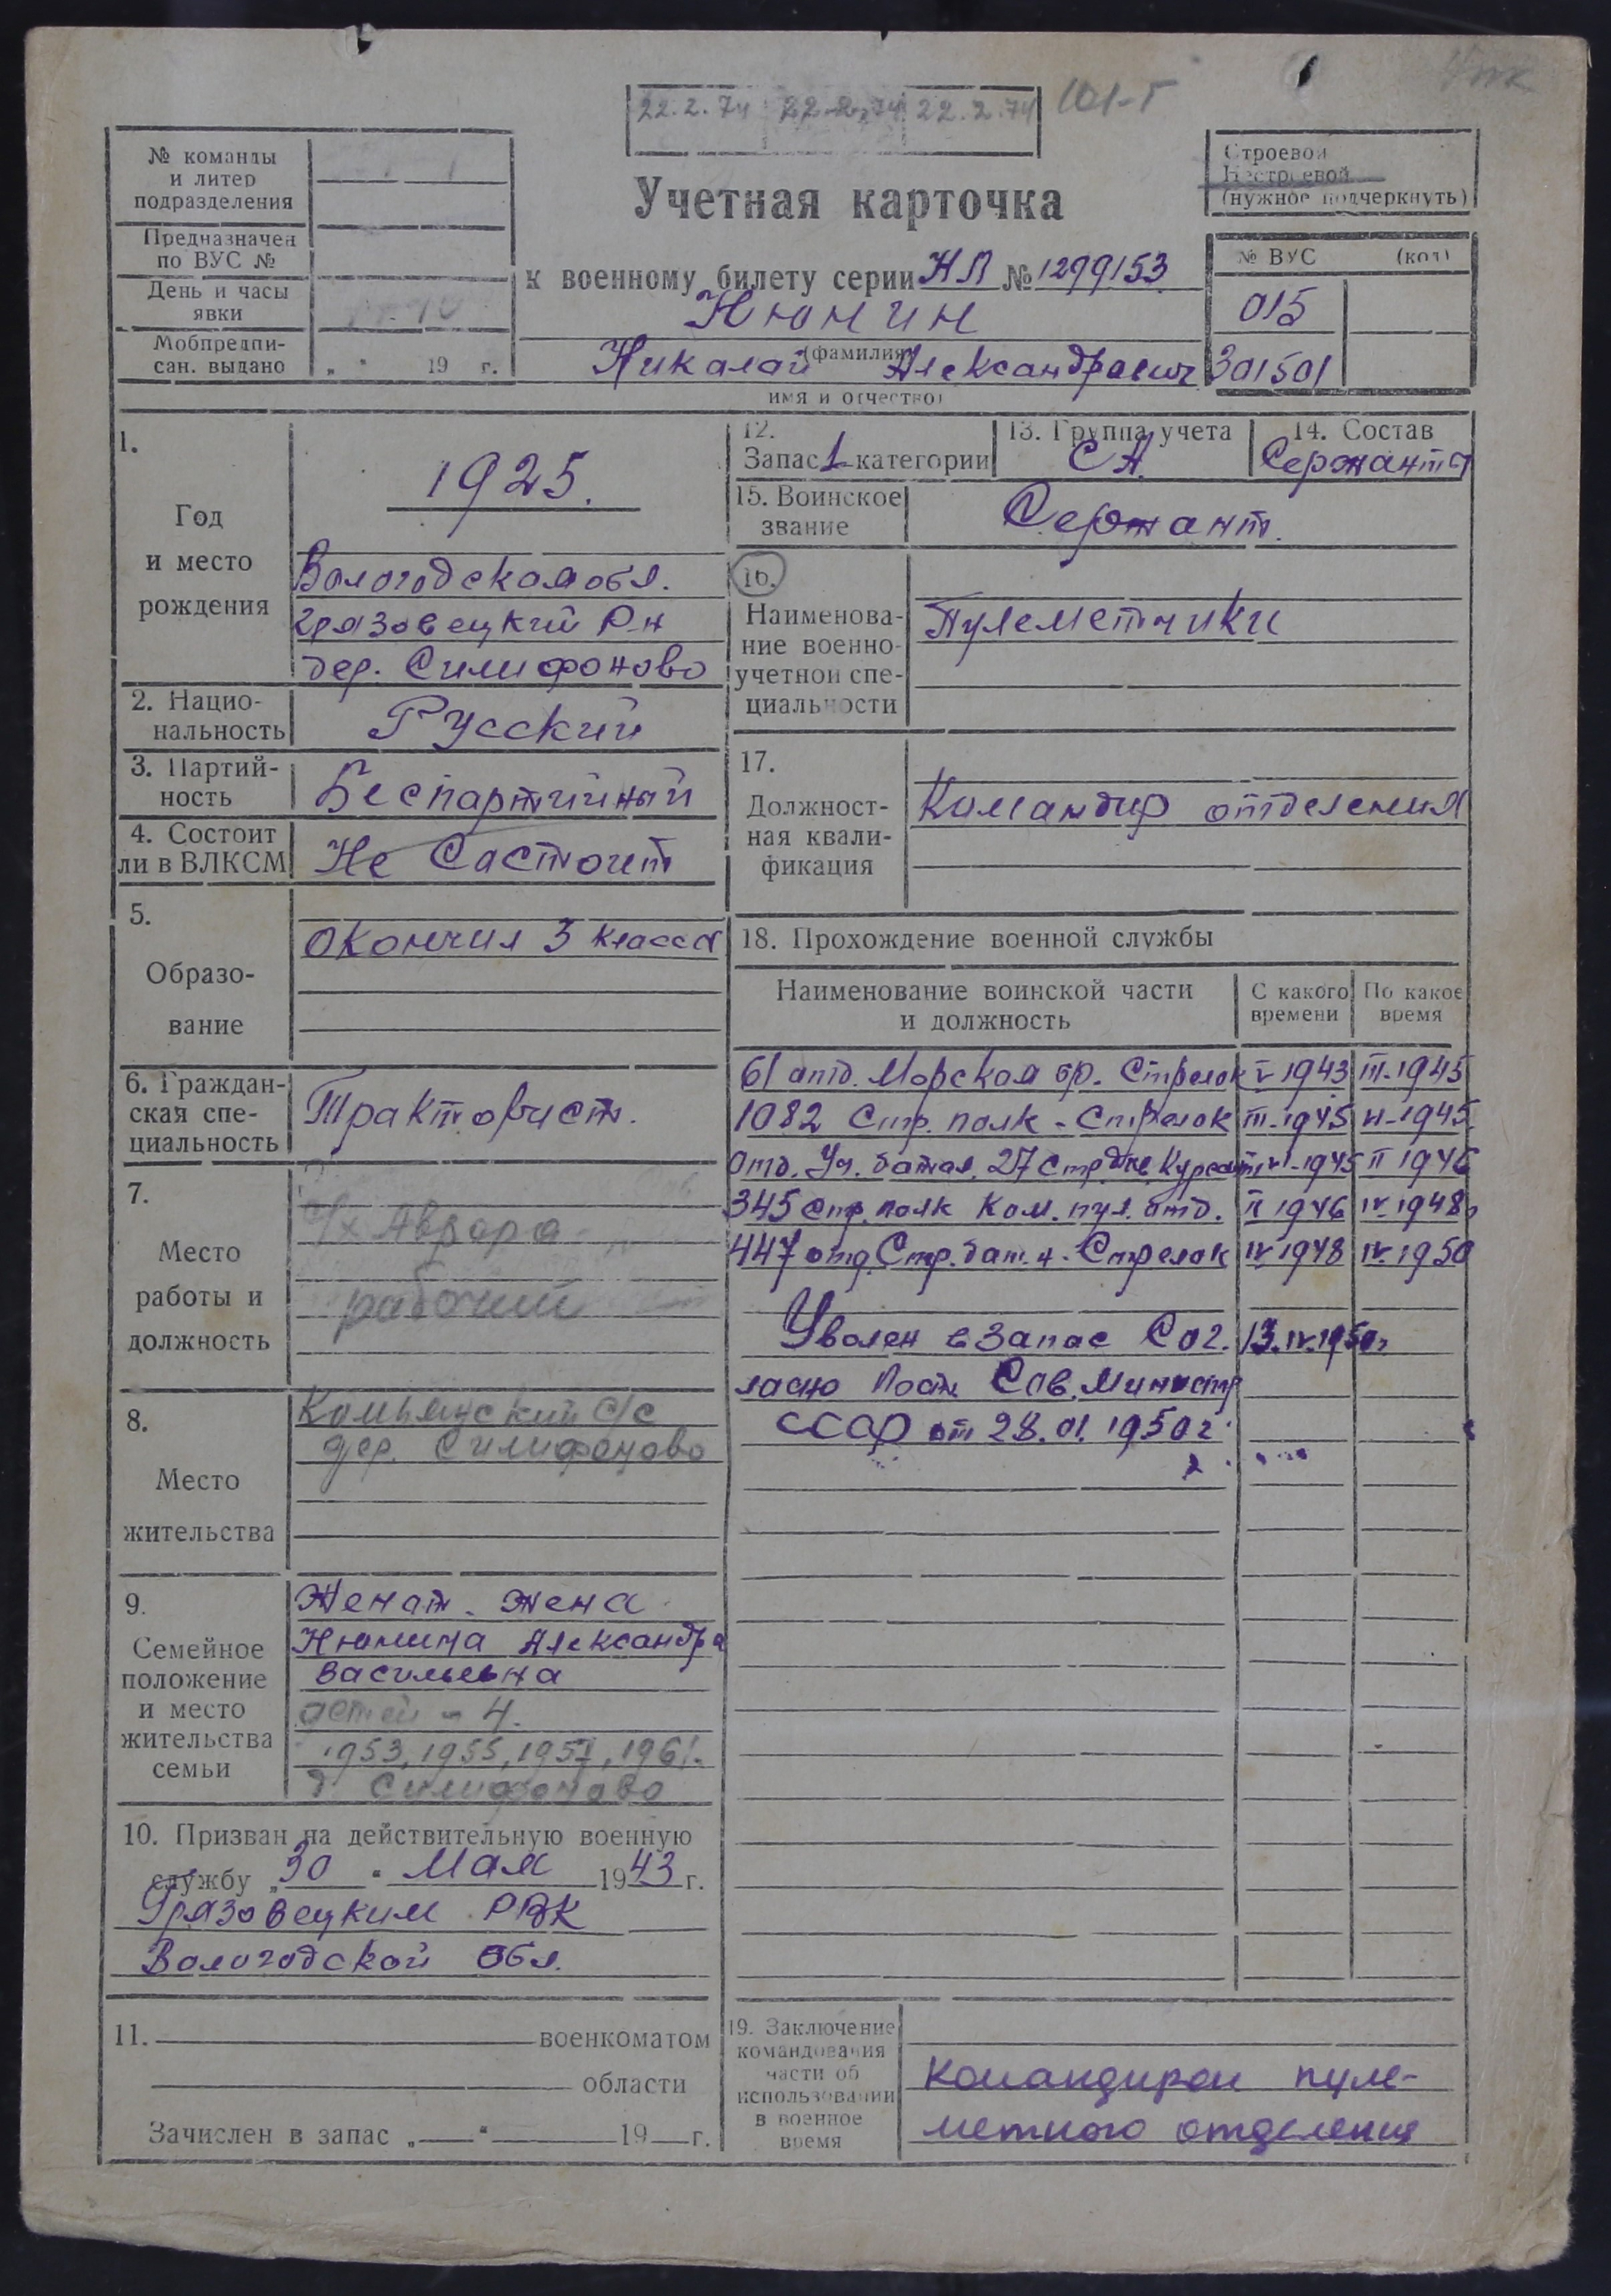 22.2.74 22.2.74 22.2.74 101-Г
№ команды
и литер
подразделения
Предназначен
по ВУС №
День и часы
явки
Мобпредпи-
сан. выдано „ " 19 г.
Учетная карточка
к военному билету серии НЛ № 1299153
Нюнин
(фамилия)
Николай Александрович
имя и отчество)
Строевой
Нестроевой
(нужное подчеркнуть)
№ ВУС (код)
015
301501
1.
Год
и место
рождения
1925.
Вологодская обл.
Грязовецкий р-н
дер. Силифоново
2. Нацио-
нальность
Русский
3. Партий-
ность
Беспартийный
4. Состоит
ли в ВЛКСМ
Не Састоит
5.
Образо-
вание
Окончил 3 класса
6. Граждан-
ская спе-
циальность
Тракторист.
7.
Место
работы и
должность
с/х Аврора
рабочий
8.
Место
жительства
с/с
дер. Силифоново
9.
Семейное
положение
и место
жительства
семьи
Женат. Жена
Нюнина Александра
Васильевна
детей - 4.
1953, 1955, 1957, 1961.
д. Силифоново
10. Призван на действительную военную
службу „ 30 " Мая 1943 г.
Грязовецким РВК
Вологодской обл.
11. военкоматом
области
Зачислен в запас „ " 19 г.
12.
Запас 1 категории
13. Группа учета
СА
14. Состав
Сержанты
15. Воинское
звание
Сержант.
16.
Наименова-
ние военно-
учетной спе-
циальности
Пулеметчики
17.
Должност-
ная квали-
фикация
Командир отделения
18. Прохождение военной службы
Наименование воинской части
и должность
С какого
времени
По какое
время
61 отд. Морская бр. Стрелок V 1943 III-1945
1082 Стр. полк - Стрелок III-1945 VI-1945
Отд. Уч. батал. 27 стр див Курсант VI-1945 II 1946
345 стр. полк Ком. пул. отд. II 1946 IV-1948г
447 отд. Стр. бат. н - Стрелок IV 1948 IV-1950
Уволен в запас Сог. 13.IV.1950г
ласно Пост. Сов. Министр
СССР от 28.01.1950 г
19. Заключение
командования
части об
использовании
в военное
время
Командиром пуле-
метного отделения